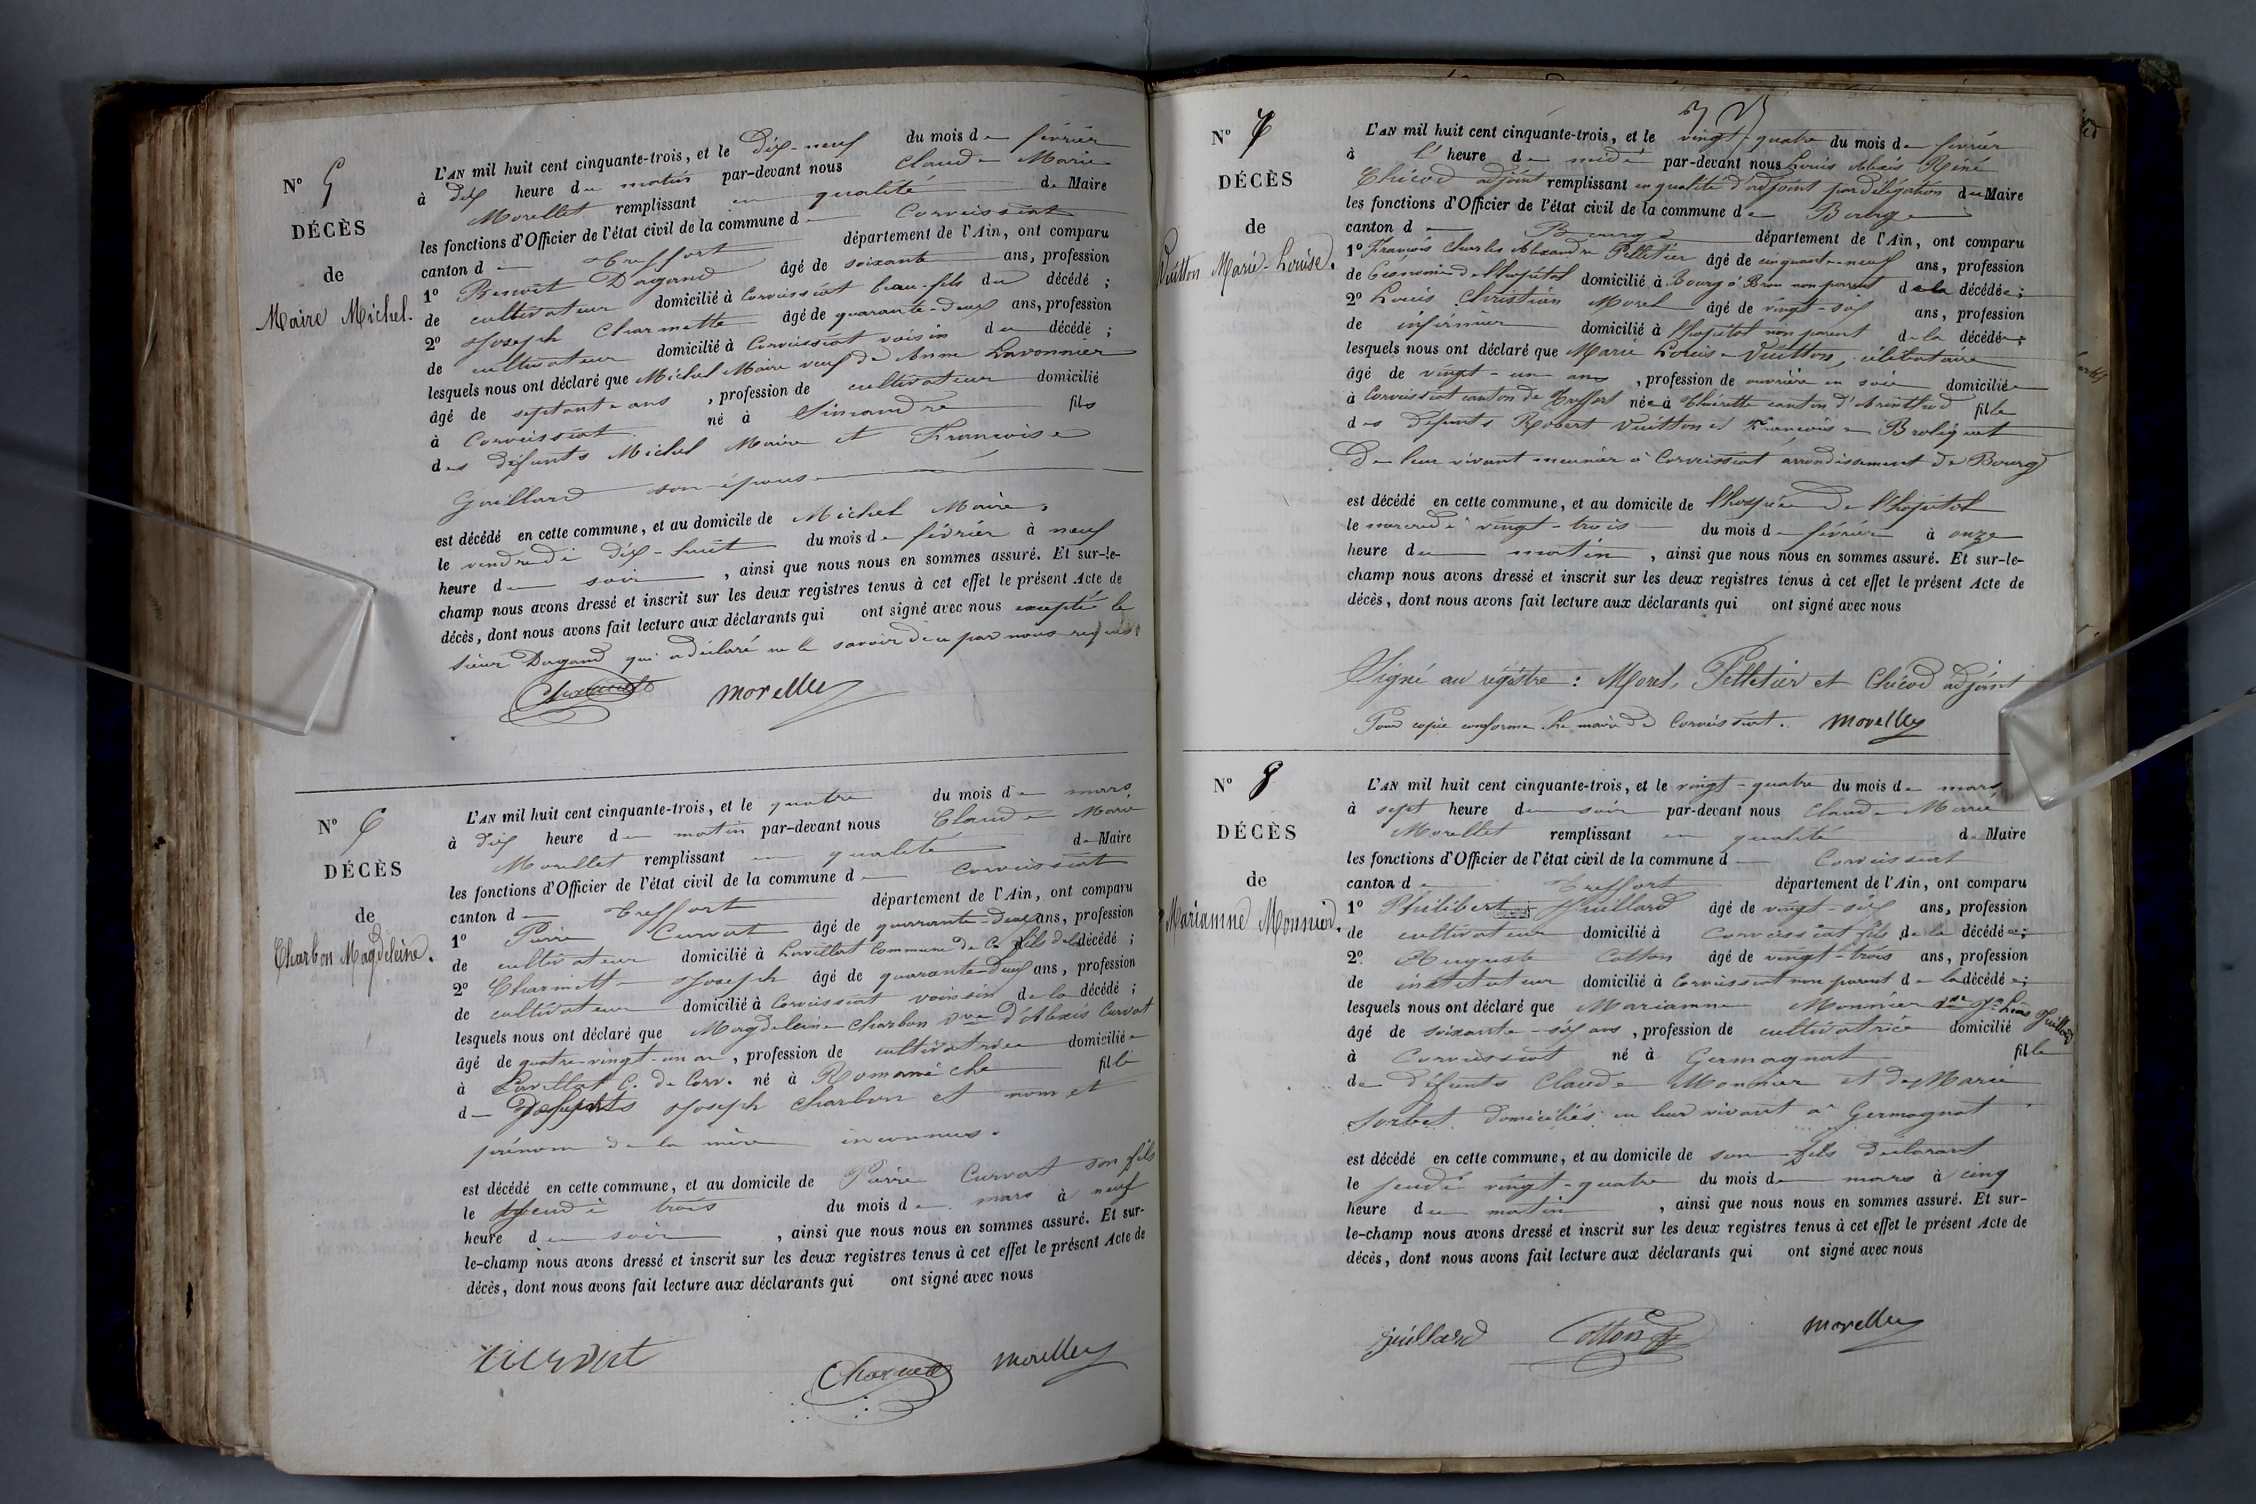 N° 5
DÉCÈS
de
Maire Michel.
L'AN mil huit cent cinquante-trois, et le dix-neuf du mois de février
à dix heure du matin par-devant nous Claude Marie
Morellet remplissant en qualité de Maire
les fonctions d'Officier de l'état civil de la commune de Corveissiat
canton de Treffort département de l'Ain, ont comparu
1° Benoit Dagand âgé de soixante ans, profession
de cultivateur domicilié à Corveissiat beau-fils du décédé ;
2° Joseph Charmette âgé de quarante-deux ans, profession
de cultivateur domicilié à Corveissiat voisin du décédé ;
lesquels nous ont déclaré que Michel Maire veuf de Anne Lavonnier
âgé de septante ans , profession de cultivateur domicilié
à Corveissiat né à Simandre fils
des défunts Michel Maire et Françoise
Gaillard son épouse
est décédé en cette commune, et au domicile de Michel Maire,
le vendredi dix-huit du mois de février à neuf
heure du soir , ainsi que nous nous en sommes assuré. Et sur-le-
champ nous avons dressé et inscrit sur les deux registres tenus à cet effet le présent Acte de
décès, dont nous avons fait lecture aux déclarants qui ont signé avec nous excepté le
sieur Dagand qui a déclaré ne le savoir de ce par nous requis
Charmette morellet
N° 6
DÉCÈS
de
Charbon Magdeleine.
L'AN mil huit cent cinquante-trois, et le quatre du mois de mars
à dix heure du matin par-devant nous Claude Marie
Morellet remplissant en qualité de Maire
les fonctions d'Officier de l'état civil de la commune de Corveissiat
canton de Treffort département de l'Ain, ont comparu
1° Pierre Curvat âgé de quarante-deux ans, profession
de cultivateur domicilié à Lavillat Commune de C. fils de la décédé ;
2° Charmette Joseph âgé de quarante-deux ans, profession
de cultivateur domicilié à Corveissiat voissin de la décédé ;
lesquels nous ont déclaré que Magdeleine Charbon Vve d'Alexis Curvat
âgé de quatre-vingt-un an , profession de cultivatrice domiciliée
à Lavillat C. de Corv. né à Romanèche fille
de Défunts Joseph Charbon et nom et
prénom de la mère inconnus.
est décédé en cette commune, et au domicile de Pierre Curvat son fils
le jeudi trois du mois de mars à neuf
heure du soir , ainsi que nous nous en sommes assuré. Et sur-
le-champ nous avons dressé et inscrit sur les deux registres tenus à cet effet le présent Acte de
décès, dont nous avons fait lecture aux déclarants qui ont signé avec nous
Curvat Charmette morellet
N° 7
DÉCÈS
de
Vuitton Marie-Louise.
L'AN mil huit cent cinquante-trois, et le vingt-quatre du mois de février
à l' heure de midi par-devant nous Louis Alexis Réné
Chicod adjoint remplissant en qualité d'adjoint par délégation du Maire
les fonctions d'Officier de l'état civil de la commune de Bourg
canton de Bourg département de l'Ain, ont comparu
1° François Charles Alexandre Pelletier âgé de cinquante-neuf ans, profession
de Econome de l'hopital domicilié à Bourg à Brou non parent de la décédée ;
2° Louis Christian Morel âgé de vingt-six ans, profession
de infirmier domicilié à l'hopital non parent de la décédée ;
lesquels nous ont déclaré que Marie Louise Vuitton, célibataire
âgé de vingt-un ans , profession de ouvrière en soie domiciliée
à Corveissiat canton de Treffort née à Thoirette canton d'Arinthod fille
des défunts Robert Vuitton et Françoise Broliquet
De leur vivant meunier à Corveissiat arrondissement de Bourg
est décédé en cette commune, et au domicile de l'hospice de l'hopital
le mercredi vingt-trois du mois de février à onze
heure du matin , ainsi que nous nous en sommes assuré. Et sur-le-
champ nous avons dressé et inscrit sur les deux registres tenus à cet effet le présent Acte de
décès, dont nous avons fait lecture aux déclarants qui ont signé avec nous
Signé au régistre : Morel, Pelletier et Chicod adjoint
Pour copie conforme Le maire de Corveissiat. morellet
N° 8
DÉCÈS
de
Mariamne Monnier.
L'AN mil huit cent cinquante-trois, et le vingt-quatre du mois de mars
à sept heure du soir par-devant nous Claude Marie
Morellet remplissant en qualité de Maire
les fonctions d'Officier de l'état civil de la commune d Corveissiat
canton de Treffort département de l'Ain, ont comparu
1° Philibert Juillard âgé de vingt-six ans, profession
de cultivateur domicilié à Corveissiat fils de la décédée ;
2° Auguste Cotton âgé de vingt-trois ans, profession
de instituteur domicilié à Corveissiat non parent de la décédée ;
lesquels nous ont déclaré que Mariamne Monnier Vve Juillard
âgé de soixante-six ans , profession de cultivatrice domicilié
à Corveissiat né à Germagnat fille
de défunts Claude Monnier et de Marie
Sorbet domiciliés en leur vivant à Germagnat
est décédé en cette commune, et au domicile de son fils déclarant
le jeudi vingt-quatre du mois de mars à cinq
heure du matin , ainsi que nous nous en sommes assuré. Et sur-
le-champ nous avons dressé et inscrit sur les deux registres tenus à cet effet le présent Acte de
décès, dont nous avons fait lecture aux déclarants qui ont signé avec nous
juillard Cotton morellet